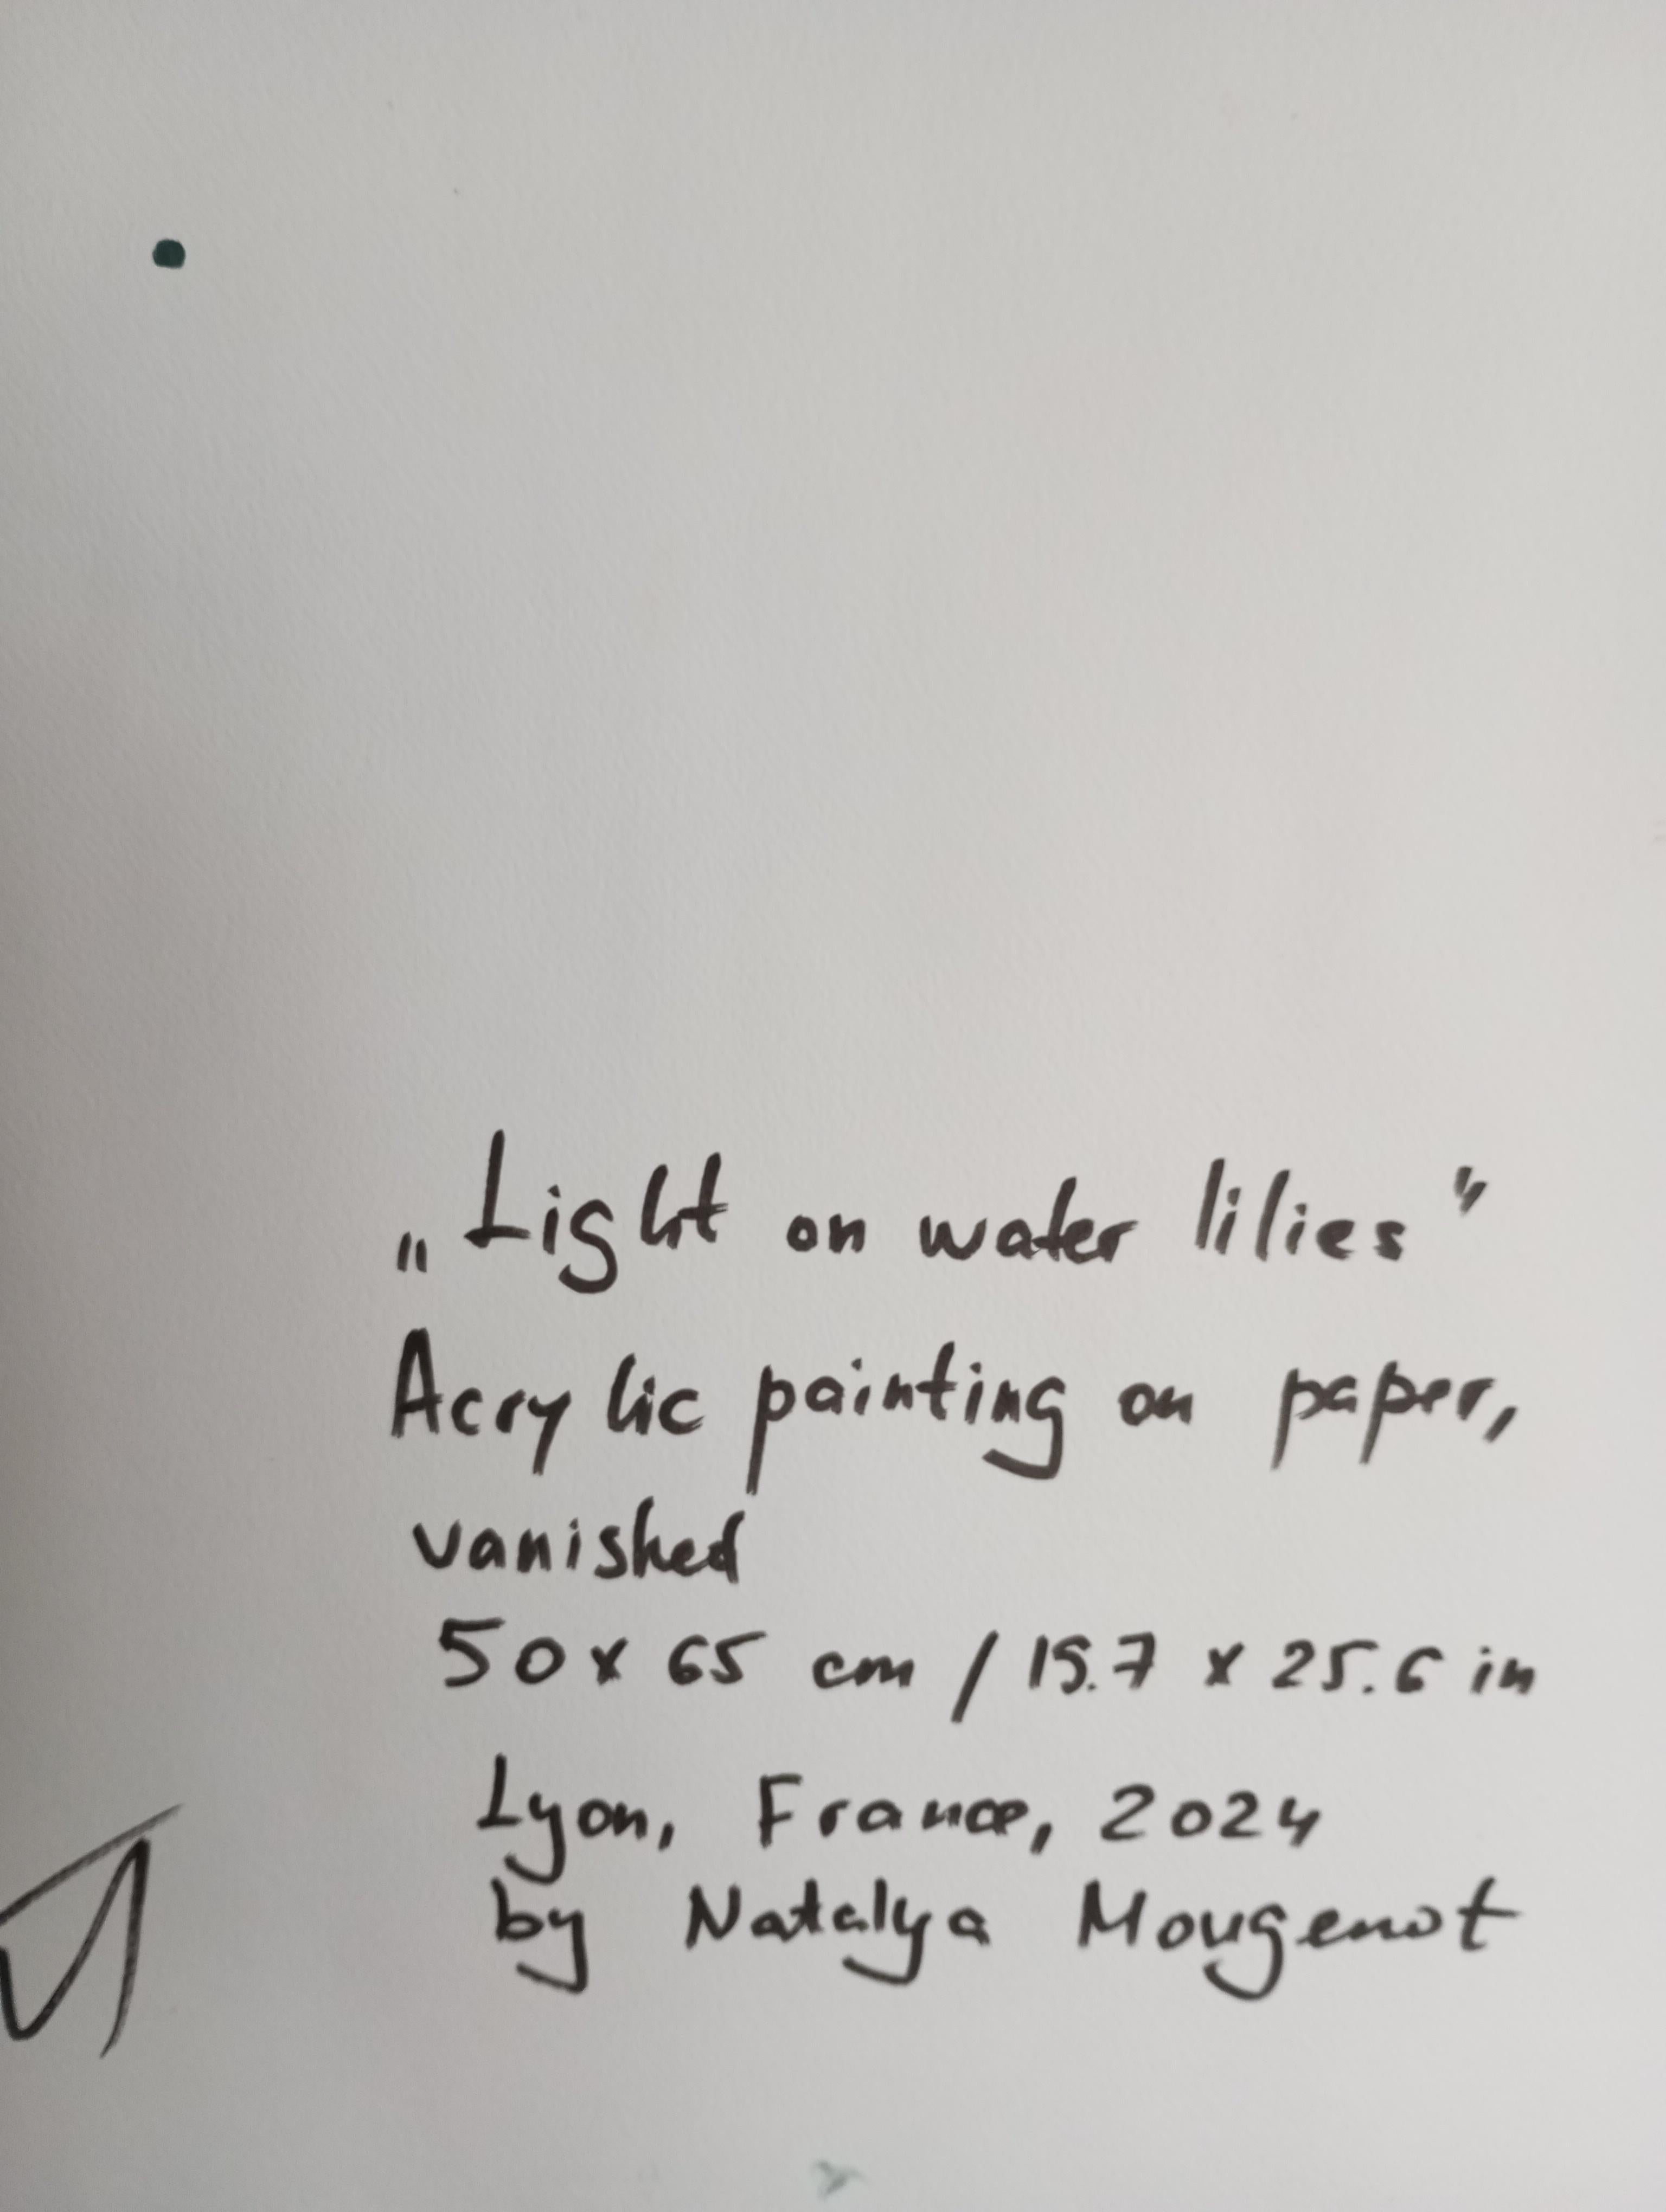 „Light on water lilies"
Acrylic painting on paper,
vanished
50 x 65 cm / 15.7 x 25.6 in
Lyon, France, 2024
by Natalya Mougenot